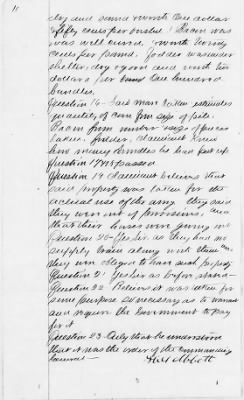 11
dry and sound worth One dollar
& fifty cents per bushel. Bacon was
was well cured, worth twenty
cents per pound. Fodder was under
shelter, dry & good and worth two
dollars per hundred
bundles.
Question 16 - Said man taken estimates
quantity of corn from size of pile.
Bacon from number & size of pieces
taken, fodder, claimant knew
how many bundles he had put up.
Question 17 & 18 passed
Question 19 Claimant believes that
said property was taken for the
actual use of the army. they said
they were out of provisions, and
that their horses were giving out
Question 20 - Yes sir as they had no
supply train along with them and
they were obliged to have such property
Question 21 Yes sir as before stated
Question 22 Believes it was taken for
some purpose so necessary as to warrant
and require the Government to pay
for it
Question 23 Only that he understood
that it was the order of the commanding
Abbott